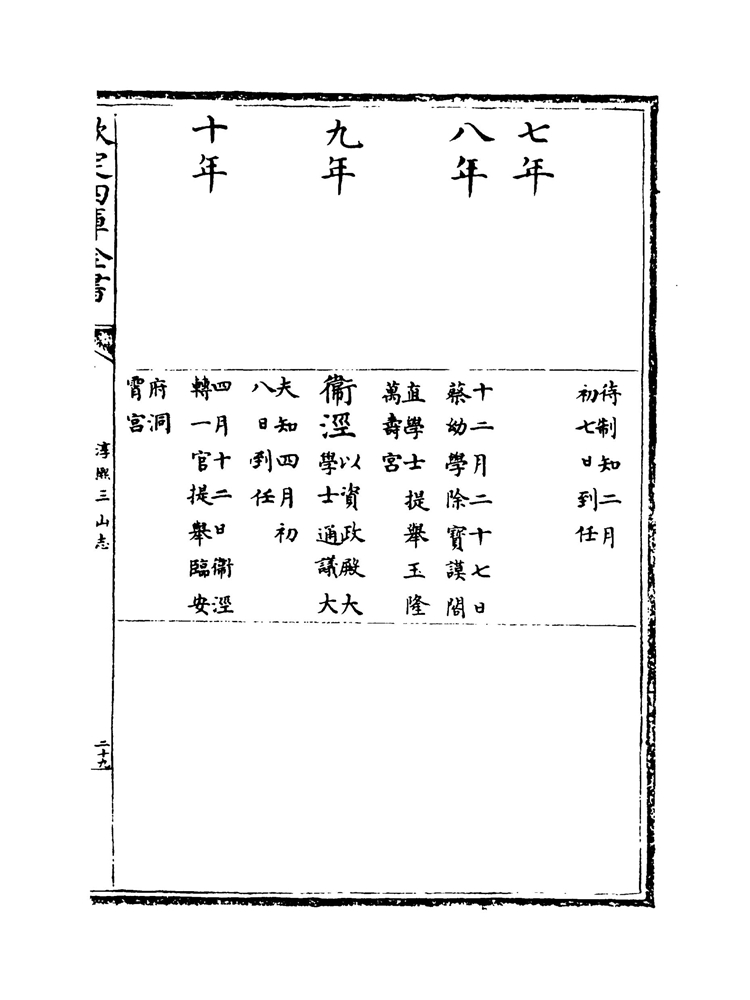 待制知二月
初七日到任
七年
八年
十二月二十七日
蔡幼學除寳謨閣
直學士提舉玉隆
萬壽宮
九年
衞涇以資政殿大
學士通議大
夫知四月初
八日到任
十年
四月十二日衞涇
轉一官提舉臨安
府洞
霄宮
欽定四庫全書
淳熙三山志
二十九